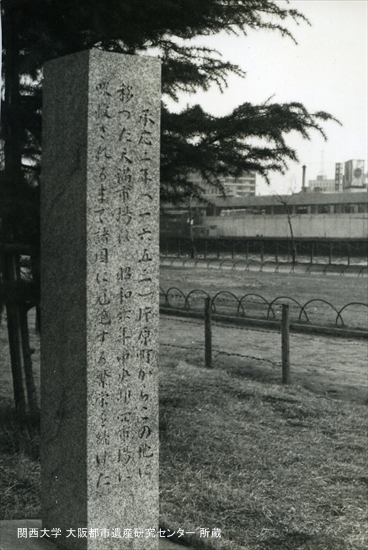 承応二年（一六五三）片原町からこの地に
移つた天満市場は、昭和六年中央卸売市場に
吸収されるまで諸国に冠絶する繁栄を続けた
関西大学 大阪都市遺産研究センター 所蔵